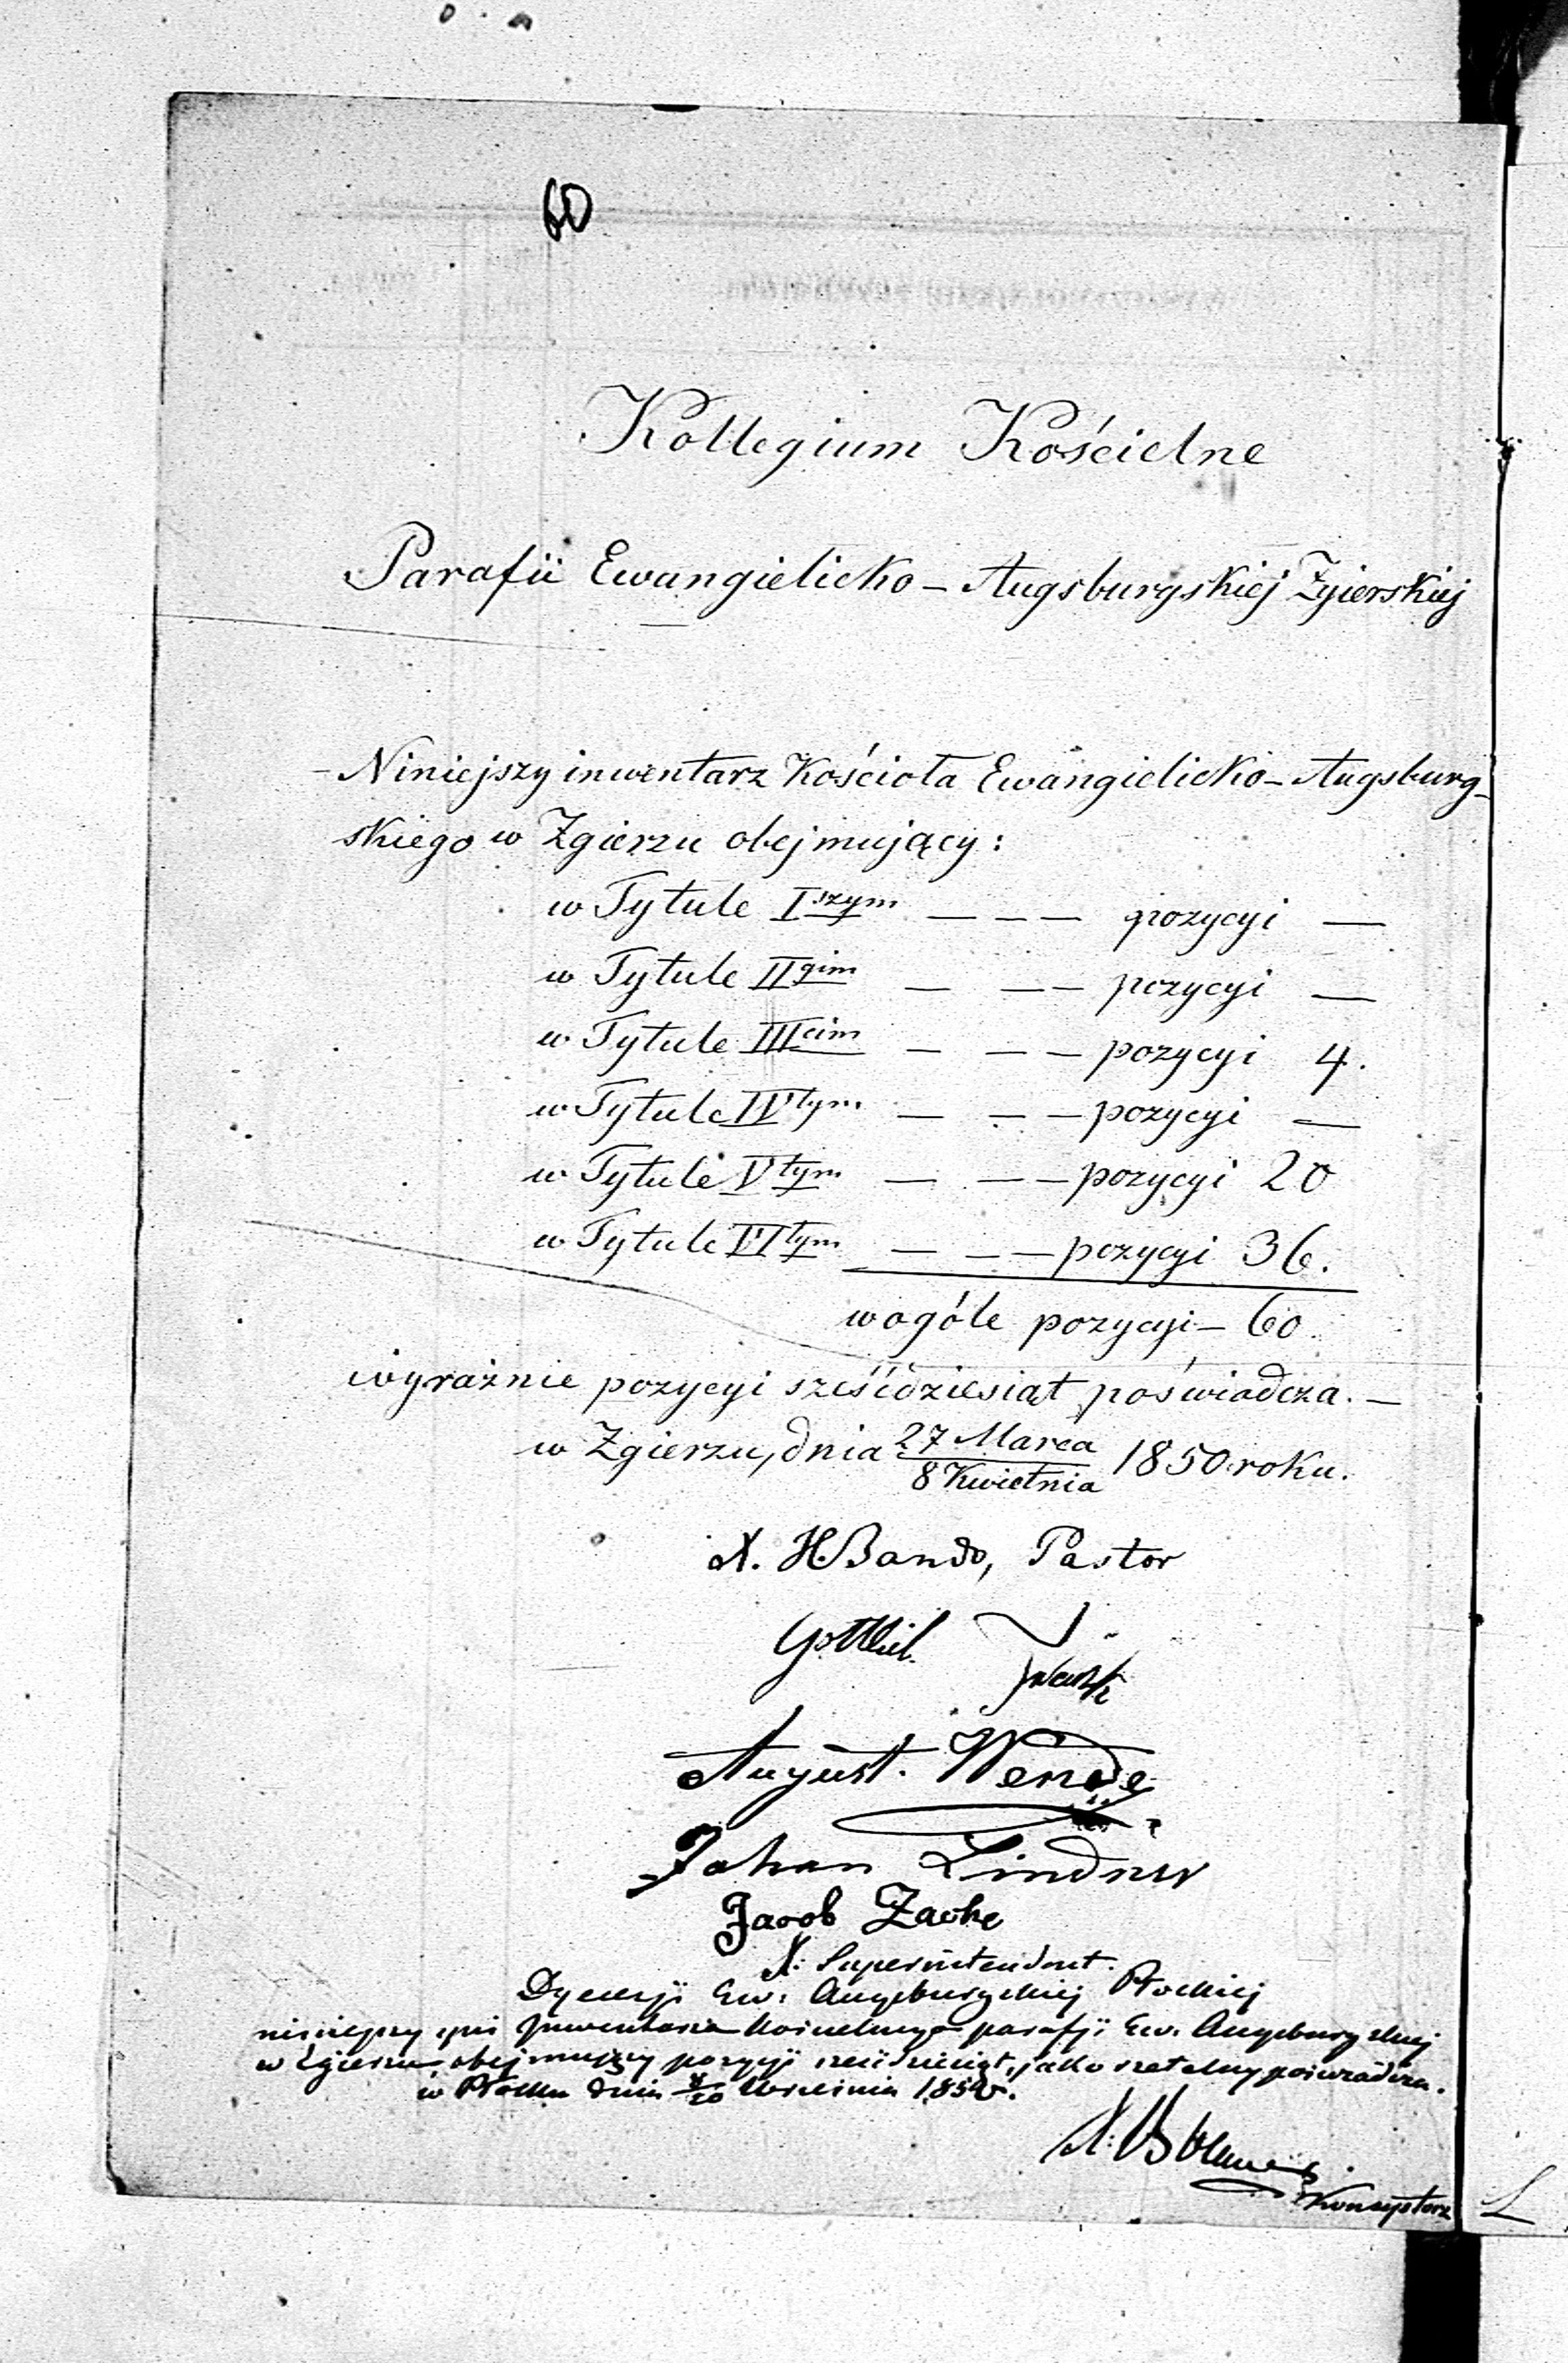 60
Kollegium Kościelne
Parafii Ewangielicko – Augsburgskiej Zgierskiej
– Niniejszy inwentarz Kościoła Ewangielicko – Augsburg-
skiego w Zgierzu obejmujący:
w Tytule I szym — — — pozycyi —
w Tytule II gim — — — pozycyi —
w Tytule III cim — — — pozycyi 4.
w Tytule IV tym — — — pozycyi —
w Tytule V tym — — — pozycyi 20
w Tytule VI tym — — — pozycyi 36.
wogóle pozycyi – 60
wyraźnie pozycyi sześćdziesiąt poświadcza. –
w Zgierzu, dnia 27 Marca / 8 Kwietnia 1850 roku.
X. H. Bando, Pastor
Gottlieb
August. Wende
Johan Lindner
Jacob Zache
X. Superintendent.
Dyecezji Ew. Augsburgskiej Płockiej
niniejszy Inwentarza Kościelnego parafji Ew. Augsburgskiej
w Zgierzu obejmujący pozycji sześćdziesiąt, jako rzetelny poświadcza.
w Płocku dnia Września 185